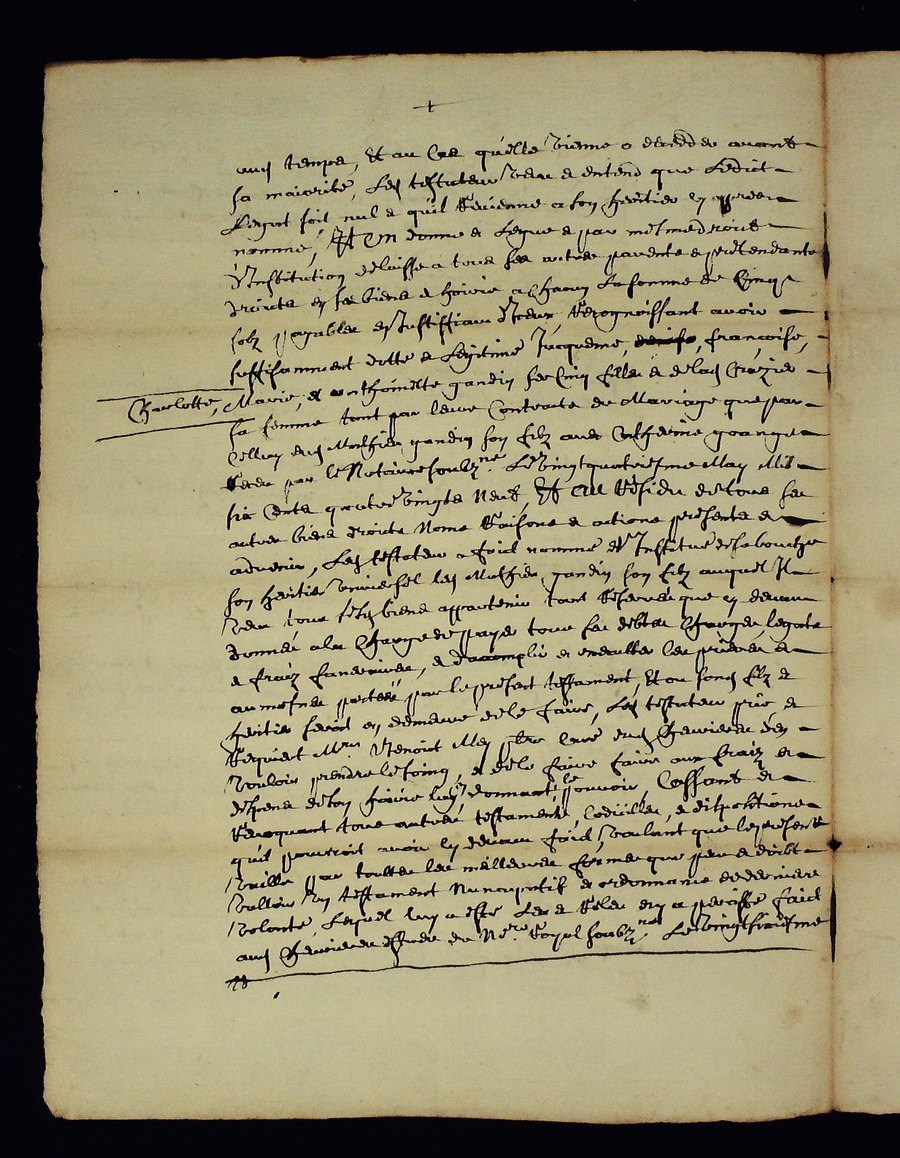 aud temps, Et au Cas quelle vienne a decedder avant
sa maiorité, Led testateur veut & entend que Ledict
Legat soit nul & quil Revienne a son heritier cy apres
nommé, Et En donne & Legue & par mesme droict
d'Institution delaisse a tous ses autres parents & pretendants
droicts en ses biens & hoirie a chacun La somme de Cinq
solz payables en Justiffiant d'Iceux, Recognoissant avoir
suffisamment dotté & Legitimé Jacquemé, françoise,
Charlotte, Marie, et anthoinette gandin ses Cinq filles & de lad
sa femme tant par leurs Contracts de Mariage que par
celluy dud Mathieu gandin son filz avec Catherine grange
Receu par le Notaire soubzne Le vingtquatriesme May Mil
six Cents quatre vingts Neuf, Et Au Residu de tous ses
autres biens droicts Noms Raisons & actions presents &
advenir, Led testateur a faict nommé et Institué de sa bouche
son heritier universel led Mathieu gandin son filz auquel Il
veut tous sesd biens appartenir tant Reservés que cy devant
donnés a la Charge de payer tous ses debtes Charges, legats
& fraiz funeraires, & d'accomplir et executter les prieres &
aumosnes portées par le present testament, Et ou sond filz &
heritier seroit en demeure de le faire, Led testateur prie &
Requiert Mre Benoict Mey pbre Curé dud
vouloir prendre le soing, & de le faire faire aux fraiz et
despens de son hoirie luy donnant le pouvoir, Cassant et
Revoquant tous autres testaments, Codicilles, & dispositions
quil pourroit avoir cy devant faict, voulant que le present
vaille par toutes les meilleures formes que peu & doibt
valloir un testament Nuncupatif & ordonnance de derniere
volonté, Lequel luy a esté Leu & Releu en sa presence faict
aud estude du Nre Royal soubzné Le vingtsixiesme